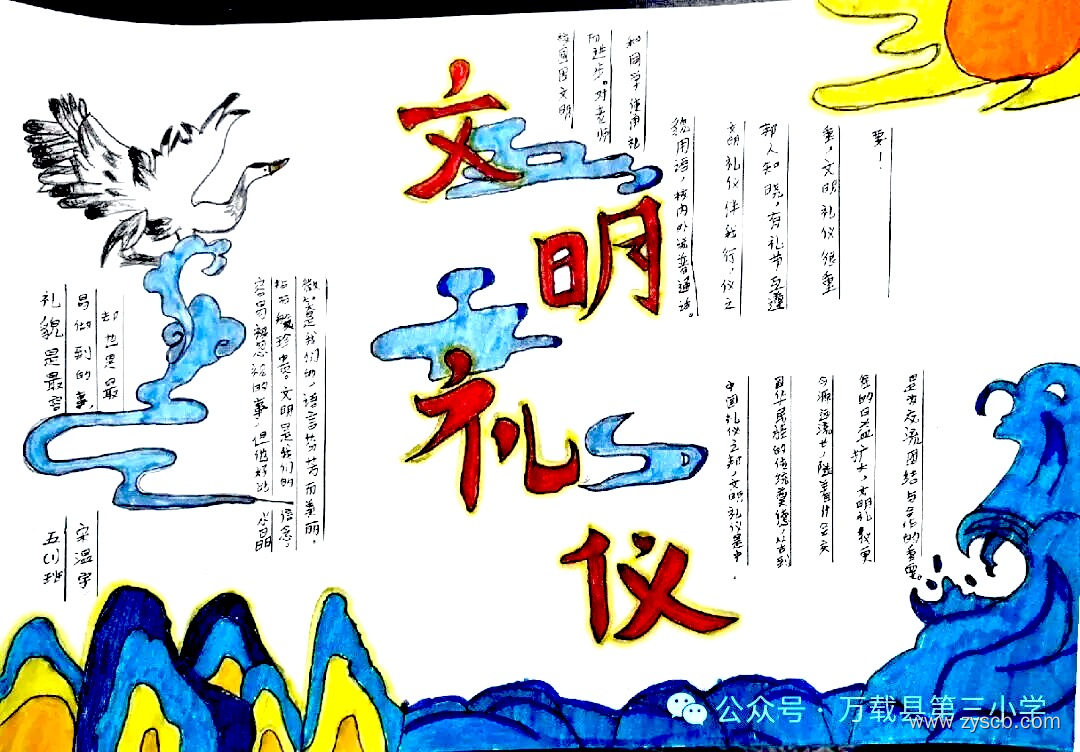 文明礼仪
和同学讲冲礼
和进步。对老师
校园因文明
貌用语，校内外讲普通话。
文明礼仪伴我行，仪之
邦人知晓，有礼节互遵
重，文明礼仪很重
要！
中国礼仪之邦，文明礼仪是中
国华民族的传统美德，从古到
今源远流长，随着社会交
往的日益扩大，文明礼貌更
是为交流团结与合作的重要。
微笑是我们的，语言芬芳而美丽，
文明是我们的信念，
容易被忽视的事，但他好比
却也是最
易做到的事，
礼貌是最容
宋温宇
五(1)班
公众号·万载县第三小学
www.zyscb.com